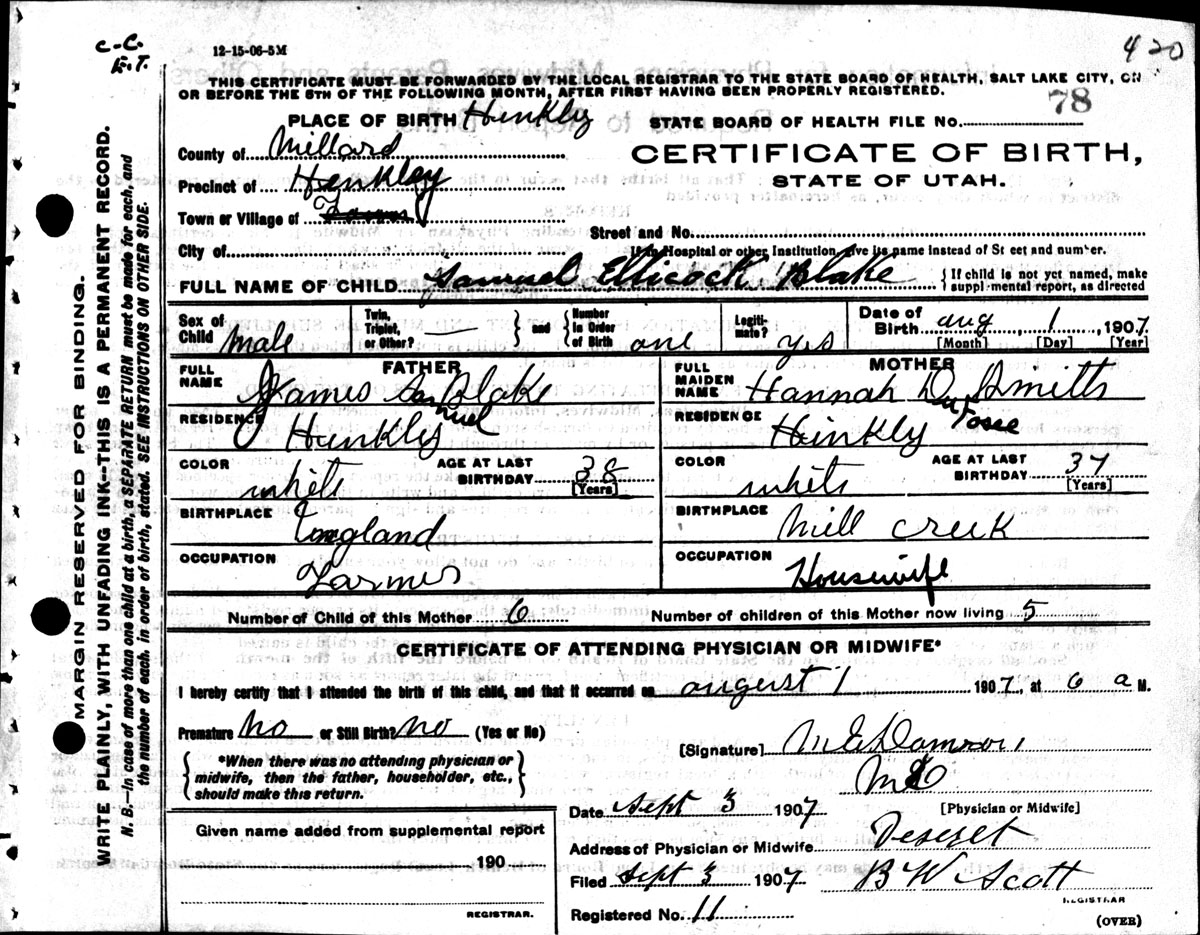 C-C.
E.T.
12-15-06-5M
420
THIS CERTIFICATE MUST BE FORWARDED BY THE LOCAL REGISTRAR TO THE STATE BOARD OF HEALTH, SALT LAKE CITY, ON
OR BEFORE THE 5TH OF THE FOLLOWING MONTH, AFTER FIRST HAVING BEEN PROPERLY REGISTERED.
78
PLACE OF BIRTH Hinkley
STATE BOARD OF HEALTH FILE NO.
County of Millard
CERTIFICATE OF BIRTH,
STATE OF UTAH.
Precinct of Hinkley
Town or Village of
Street and No.
City of
If in Hospital or other Institution give its name instead of Street and number.
FULL NAME OF CHILD Samuel Ellicock Blake
{If child is not yet named, make supplemental report, as directed
Sex of Child Male
Twin, Triplet, or Other? —
} and {
Number in Order of Birth one
Legitimate? yes
Date of Birth Aug 1, 1907
[Month] [Day] [Year]
FATHER
FULL NAME James Samuel Blake
RESIDENCE Hinkley
COLOR white
AGE AT LAST BIRTHDAY 38 [Years]
BIRTHPLACE England
OCCUPATION Farmer
MOTHER
FULL MAIDEN NAME Hannah Smith
RESIDENCE Hinkley
COLOR white
AGE AT LAST BIRTHDAY 37 [Years]
BIRTHPLACE Mill Creek
OCCUPATION Housewife
Number of Child of this Mother 6
Number of children of this Mother now living 5
CERTIFICATE OF ATTENDING PHYSICIAN OR MIDWIFE*
I hereby certify that I attended the birth of this child, and that it occurred on august 1 1907, at 6 a M.
Premature? No or Still Birth? no (Yes or No)
{*When there was no attending physician or midwife, then the father, householder, etc., should make this return.}
[Signature] M E Damron
MD
[Physician or Midwife]
Date Sept 3 1907
Address of Physician or Midwife Deseret
Filed Sept 3 1907 B W Scott
REGISTRAR
Registered No. 11
(OVER)
Given name added from supplemental report
190
REGISTRAR.
MARGIN RESERVED FOR BINDING.
WRITE PLAINLY, WITH UNFADING INK--THIS IS A PERMANENT RECORD.
N. B.—In case of more than one child at a birth, a SEPARATE RETURN must be made for each, and
the number of each, in order of birth, stated. SEE INSTRUCTIONS ON OTHER SIDE.